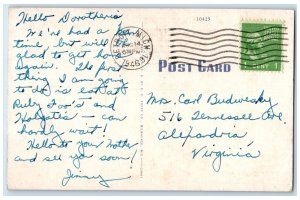 Hello Dorotheria
We've had a
time, but will be
glad to get home
again. The first
thing I am going
to do is eat at
Ruby Foo's and
Holgates - can
hardly wait!
Hello to your Mother
and see ya soon!
Jimmy
10425
MICH.
1956
POST CARD
1 CENT
Mrs. Carl Budwesky
516 Tennessee Ave.
Alexandria
Virginia